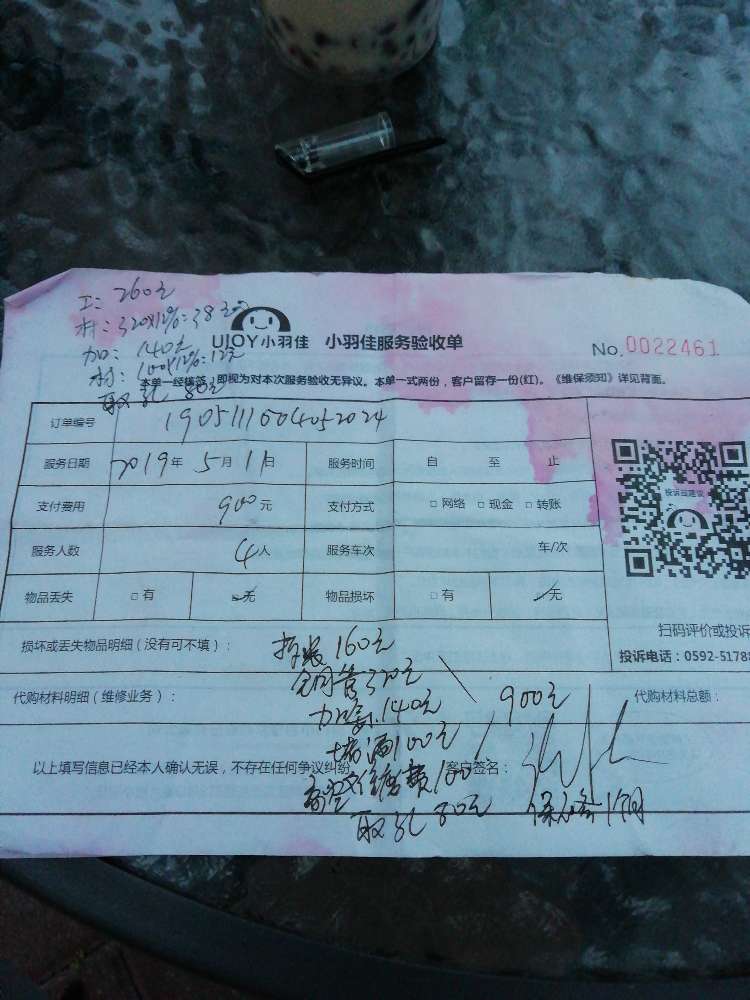 工：260元
材：320X12%=38元
加：140元
材：100X12%=12元
取孔 80元
UJOY小羽佳 小羽佳服务验收单
No.0022461
本单一经签署，即视为对本次服务验收无异议。本单一式两份，客户留存一份(红)。《维保须知》详见背面。
订单编号
服务日期 2019年 5月 11日 服务时间 自 至 止
支付费用 900元 支付方式 □网络 □现金 □转账
投诉或建议
服务人数 4人 服务车次 车/次
物品丢失 □有 无 物品损坏 □有 无
扫码评价或投诉
损坏或丢失物品明细（没有可不填）：
投诉电话：0592-5178
拆装160元
铜管320元
代购材料明细（维修业务）：
代购材料总额：
140元
900元
100元
以上填写信息已经本人确认无误，不存在任何争议纠纷。
客户签名：
高空作业费100
取孔 80元
保修1个月